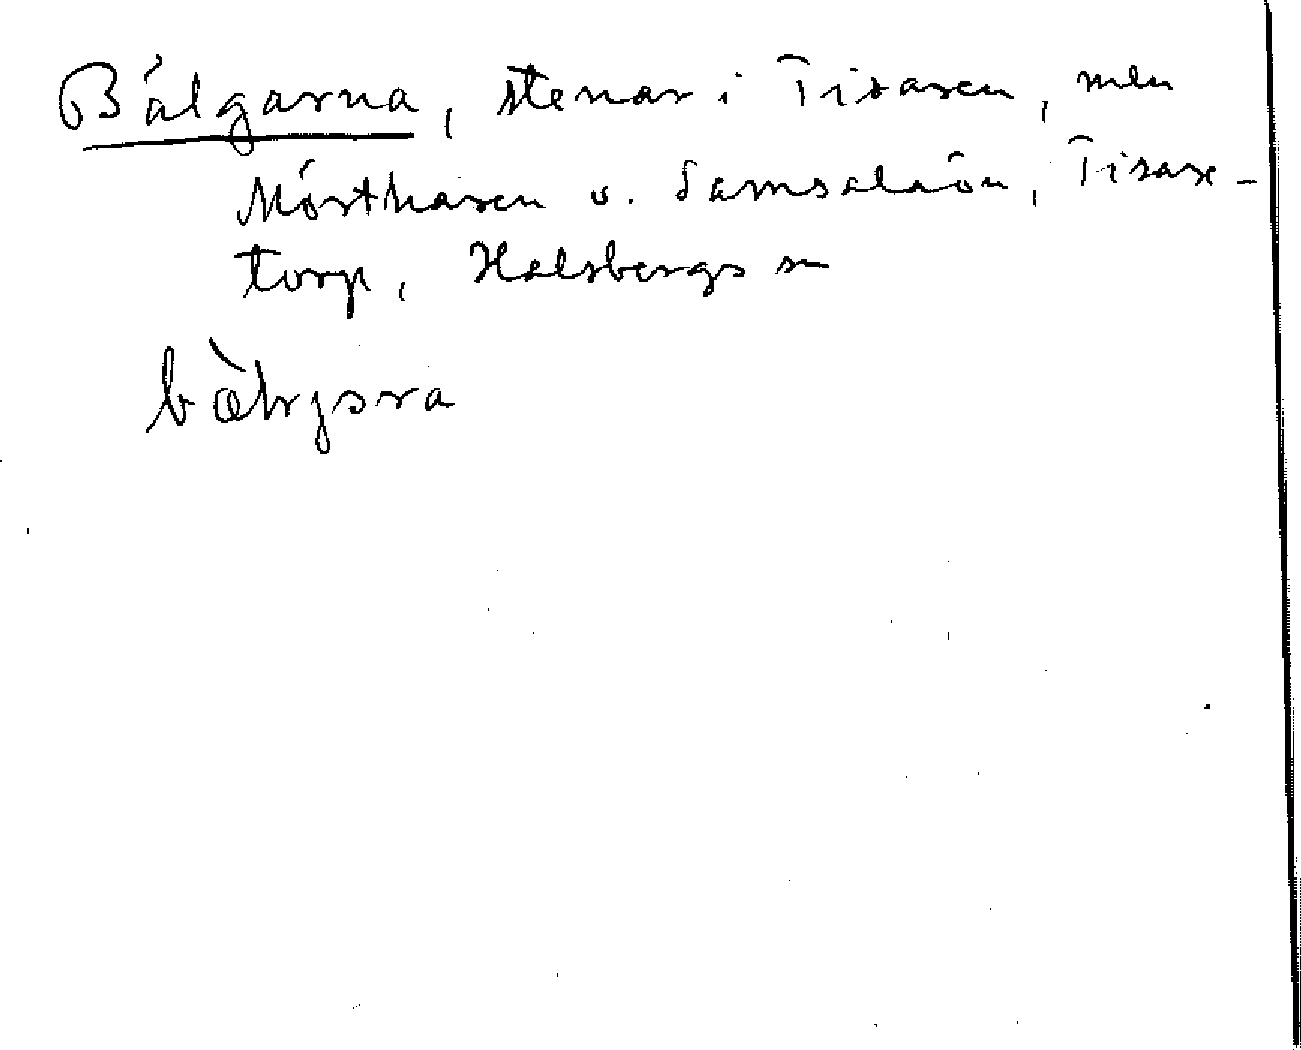 Bälgarna, stenar i Tisaren, mln
Mörtharen o. Samsalaön, Tisare-
torp, Halsbergs sn
bælrgsra